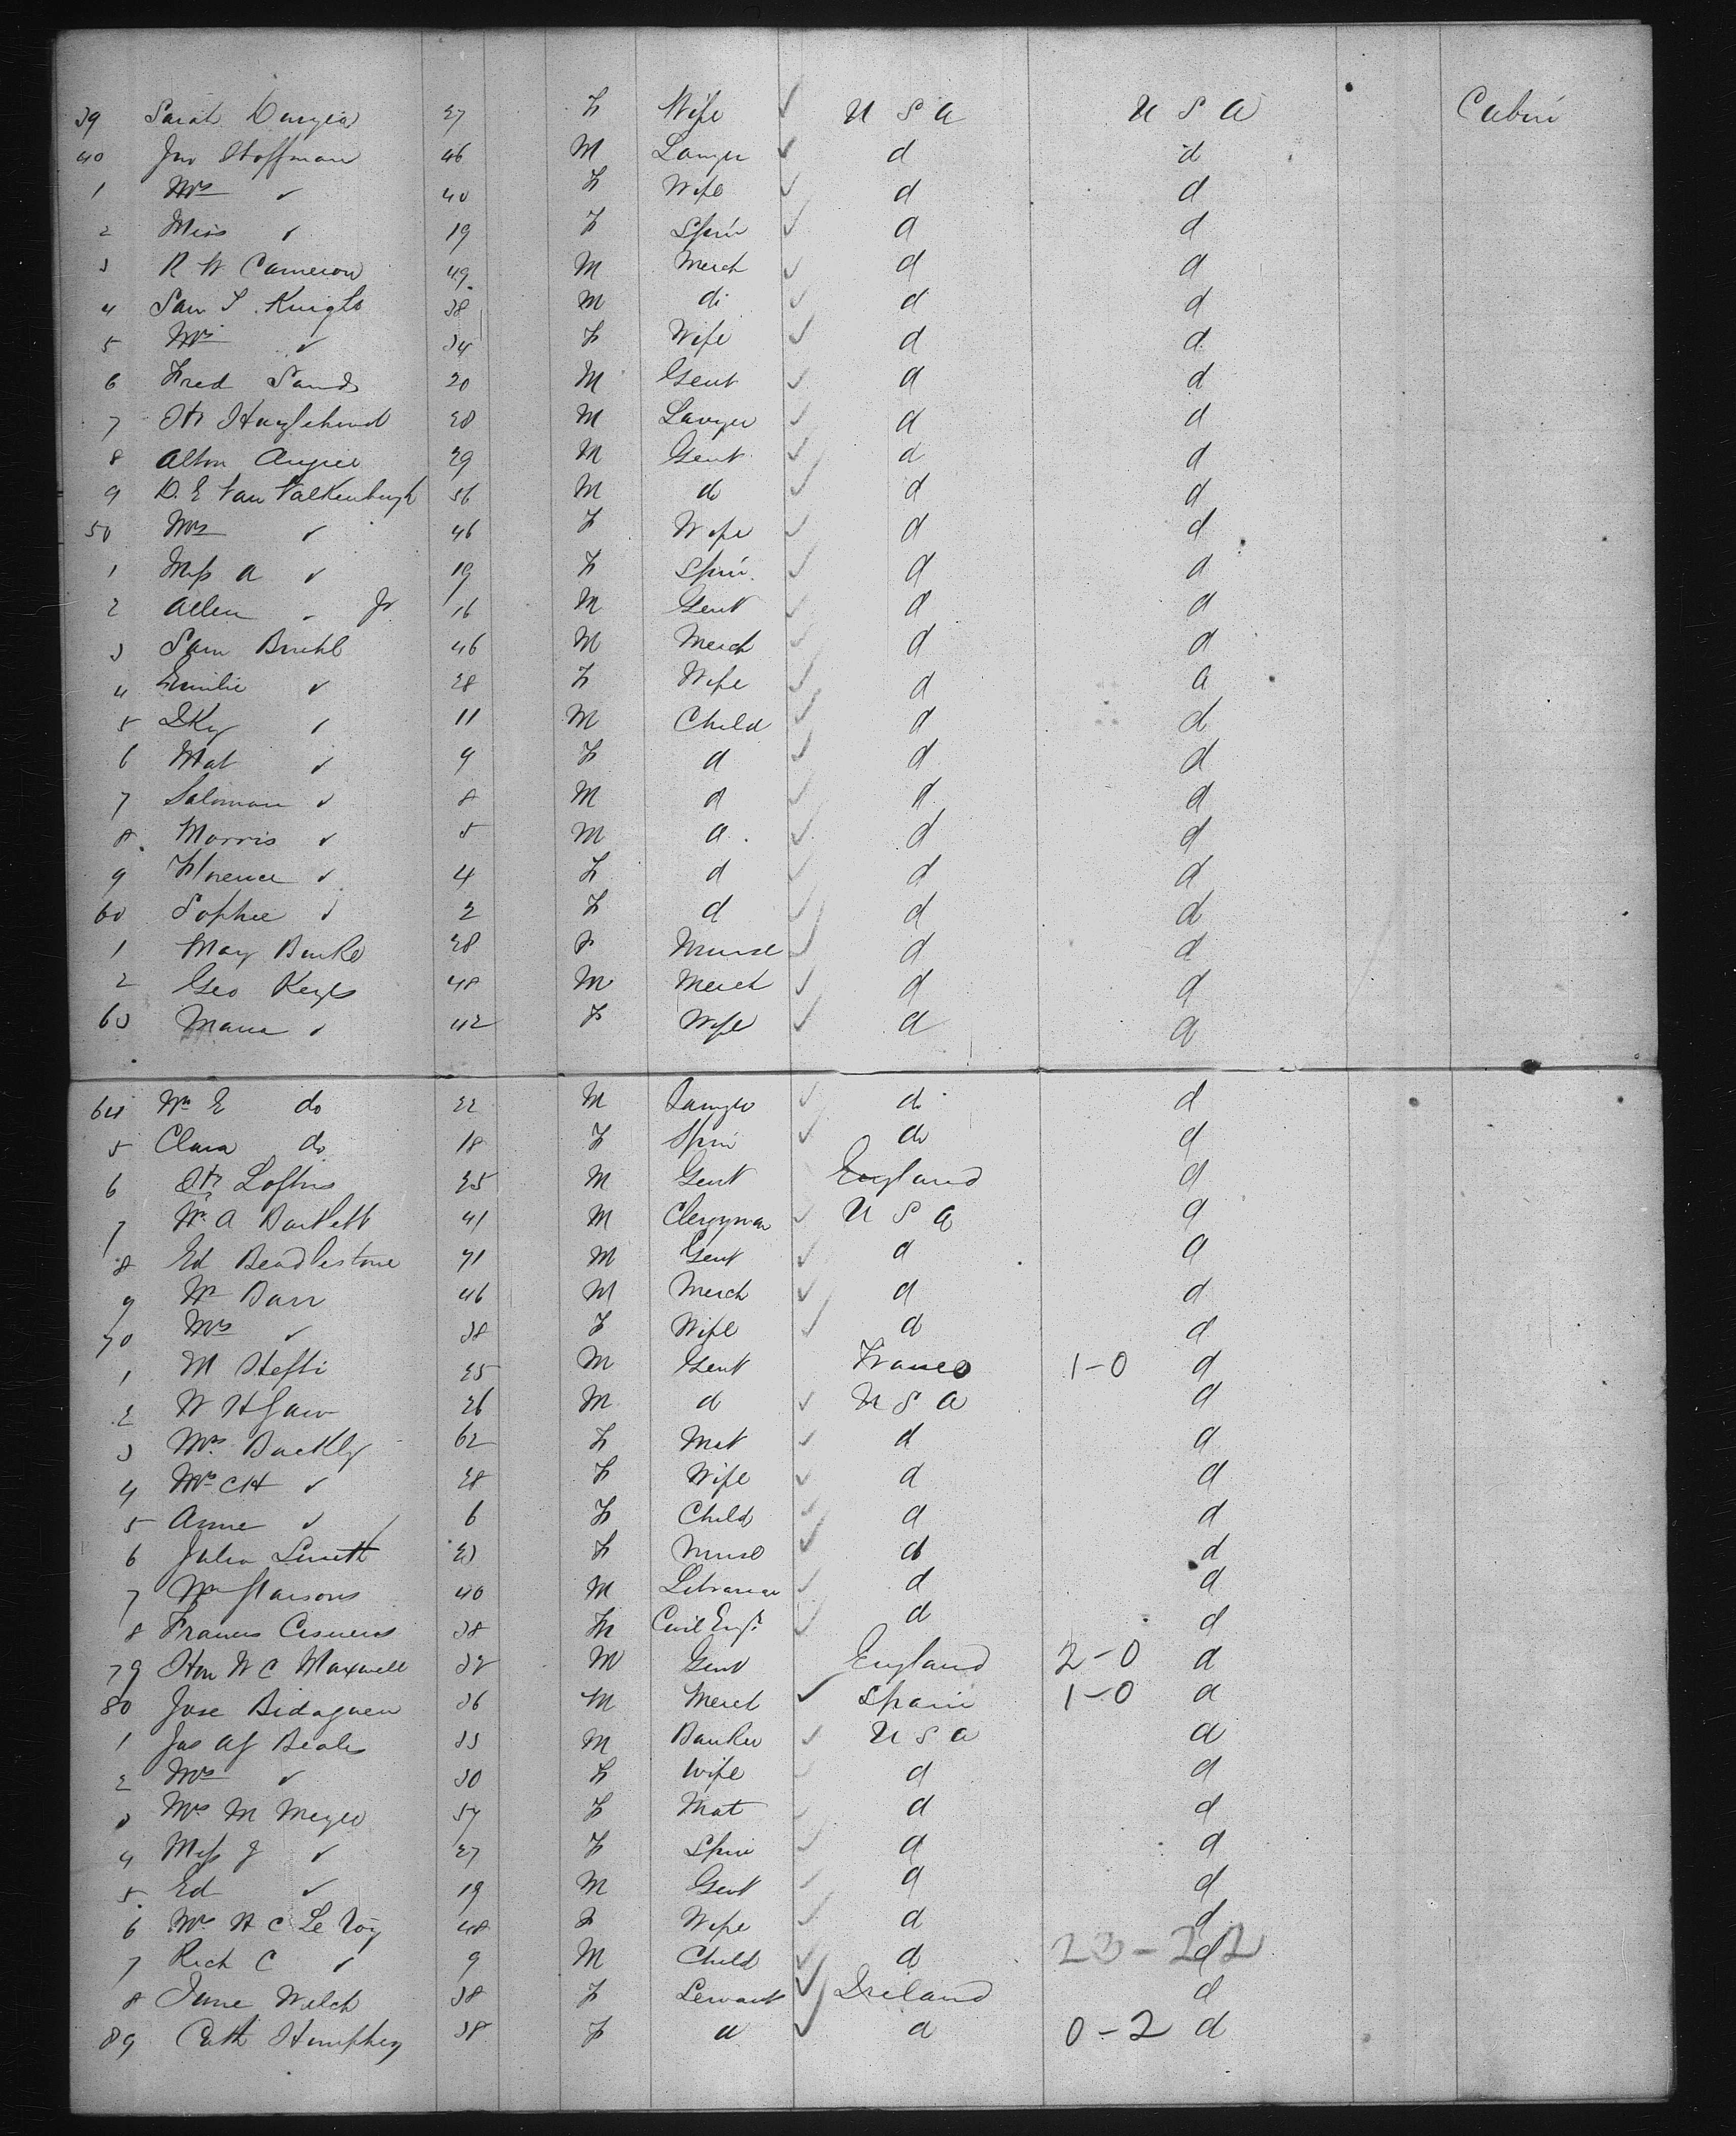 39 Sarah 27 F Wife ✓ U S A U S A Cabin
40 Jno Hoffman 46 M Lawyer ✓ d d
1 Mrs ✓ 40 F Wife ✓ d d
2 Miss ✓ 19 F Spin ✓ d d
3 R W Cameron 49 M Merch ✓ d d
4 Sam S. Knight 38 M do ✓ d d
5 Mrs ✓ 34 F Wife ✓ d d
6 Fred Sands 20 M Gent ✓ d d
7 Hy Hazlehurst 28 M Lawyer ✓ d d
8 Alton Angier 29 M Gent ✓ d d
9 D. E Van Valkenburgh 56 M do ✓ d d
50 Mrs ✓ 46 F Wife ✓ d d
1 Miss A ✓ 19 F Spin ✓ d d
2 Allen " Jr 16 M Gent ✓ d d
3 Sam Bruhl 46 M Merch ✓ d d
4 Emilie ✓ 28 F Wife ✓ d d
5 ✓ 11 M Child ✓ d d
6 Mat ✓ 9 F d ✓ d d
7 Saloman ✓ 8 M d ✓ d d
8 Morris ✓ 5 M d ✓ d d
9 Florence ✓ 4 F d ✓ d d
60 Sophie ✓ 2 F d ✓ d d
1 Mary Burke 28 F Nurse ✓ d d
2 Geo Keyes 48 M Merch ✓ d d
63 Maria ✓ 42 F Wife ✓ d d
64 Wm E do 22 M Lawyer ✓ do d
5 Clara do 18 F Spin ✓ do d
6 Hy Loftus 25 M Gent England d
7 Wm A Bartlett 41 M Clergyman ✓ U S A d
8 Ed Beadlestone 71 M Gent ✓ d d
9 Wm Barr 46 M Merch ✓ d d
70 Mrs ✓ 38 F Wife ✓ d d
1 M Hefti 25 M Gent France 1-0 d
2 W H 26 M d ✓ U S A d
3 Mrs Buckly 62 F Mat ✓ d d
4 Mrs C H ✓ 28 F Wife ✓ d d
5 Anne ✓ 6 F Child ✓ d d
6 Julia Smith 23 F Nurse ✓ d d
7 Wm Parsons 40 M Librarian ✓ d d
8 Francis Cisneros 38 M Civil Engr ✓ d d
79 Hon W C Maxwell 32 M Gent England 2-0 d
80 Jose 36 M Merch ✓ Spain 1-0 d
1 Jas A J Beales 33 M Banker ✓ U S A d
2 Mrs ✓ 30 F Wife ✓ d d
3 Mrs M Meyer 57 F Mat ✓ d d
4 Miss J ✓ 27 F Spin ✓ d d
5 Ed ✓ 19 M Gent ✓ d d
6 Mrs H C Le Roy 48 F Wife ✓ d d
7 Rich C ✓ 9 M Child ✓ d 23-22 d
8 Jane Welch 38 F Servant ✓ Ireland d
89 Cath Humphrey 38 F d ✓ d 0-2 d